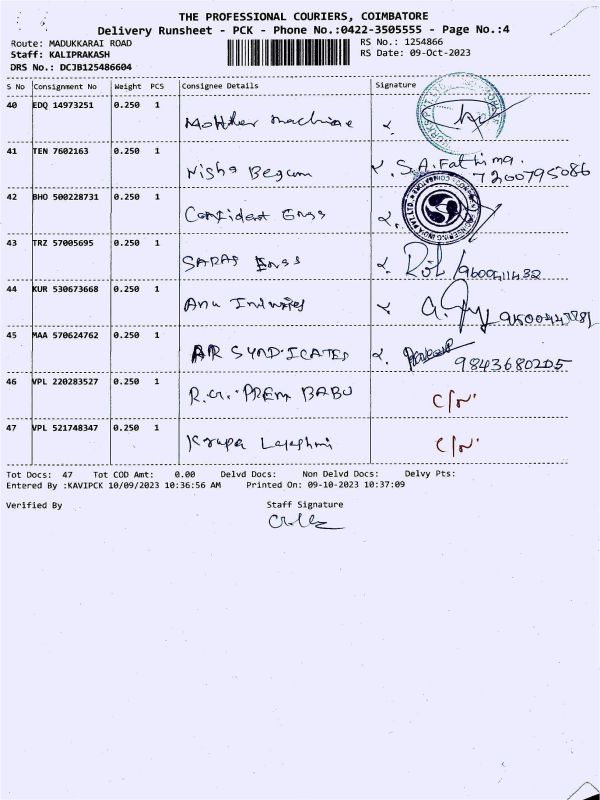 THE PROFESSIONAL COURIERS, COIMBATORE
Delivery Runsheet - PCK - Phone No.:0422-3505555 - Page No.:4
Route: MADUKKARAI ROAD RS No.: 1254866
Staff: KALIPRAKASH RS Date: 09-Oct-2023
DRS No.: DCJB125486604
S No Consignment No Weight PCS Consignee Details Signature
40 EDQ 14973251 0.250 1 Motther machine
41 TEN 7602163 0.250 1 Nisha Begam S.A. Fathima.
7200795086
42 BHO 500228731 0.250 1 Confident Engs
43 TRZ 57005695 0.250 1 SARAS Engs 9600411432
44 KUR 530673668 0.250 1 Anu
45 MAA 570624762 0.250 1 AR SYNDICATES 9843680205
46 VPL 220283527 0.250 1 PREM BABU C/N
47 VPL 521748347 0.250 1 Krupa C/N
Tot Docs: 47 Tot COD Amt: 0.00 Delvd Docs: Non Delvd Docs: Delvy Pts:
Entered By :KAVIPCK 10/09/2023 10:36:56 AM Printed On: 09-10-2023 10:37:09
Verified By Staff Signature